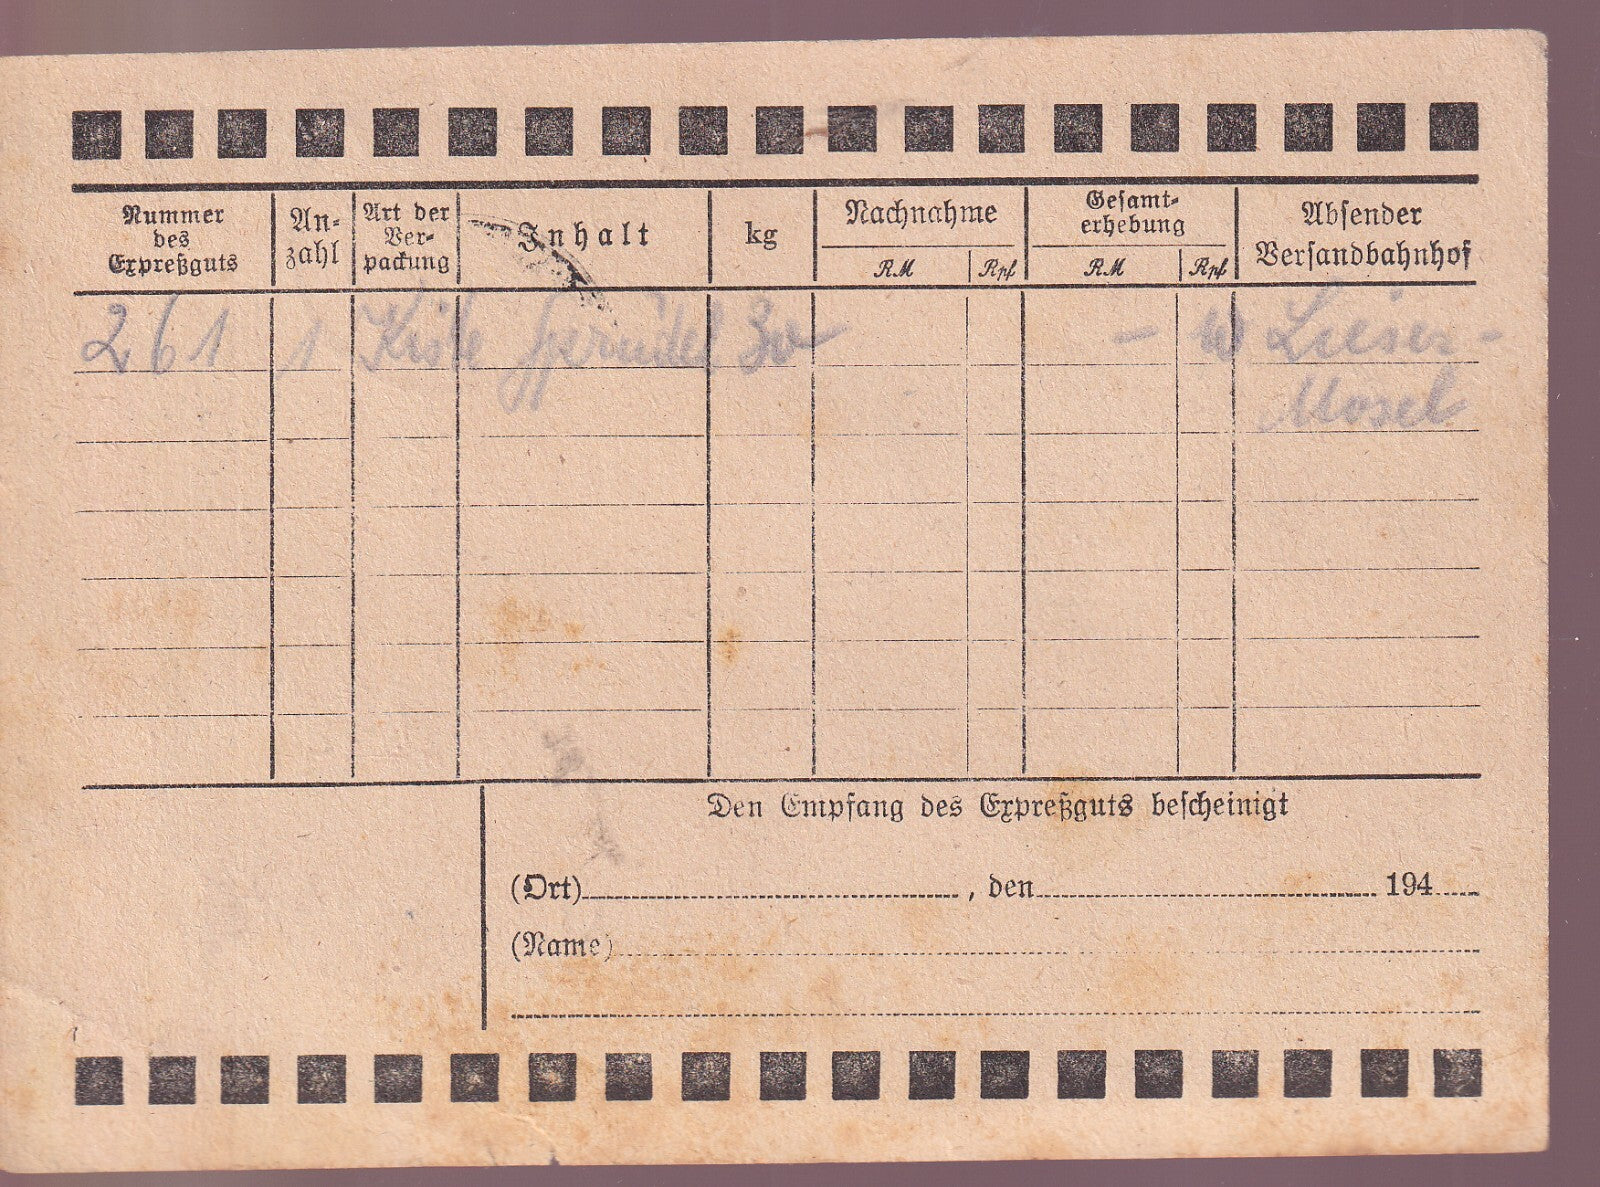 Nummer
des
Expreßguts
An-
zahl
Art der
Ver-
packung
Inhalt
kg
Nachnahme
RM Rpf
Gesamt-
erhebung
RM Rpf
Absender
Versandbahnhof
261 1 Kiste Sprudel 30 — — 10 Lieser-
Mosel
Den Empfang des Expreßguts bescheinigt
(Ort) , den 194
(Name)